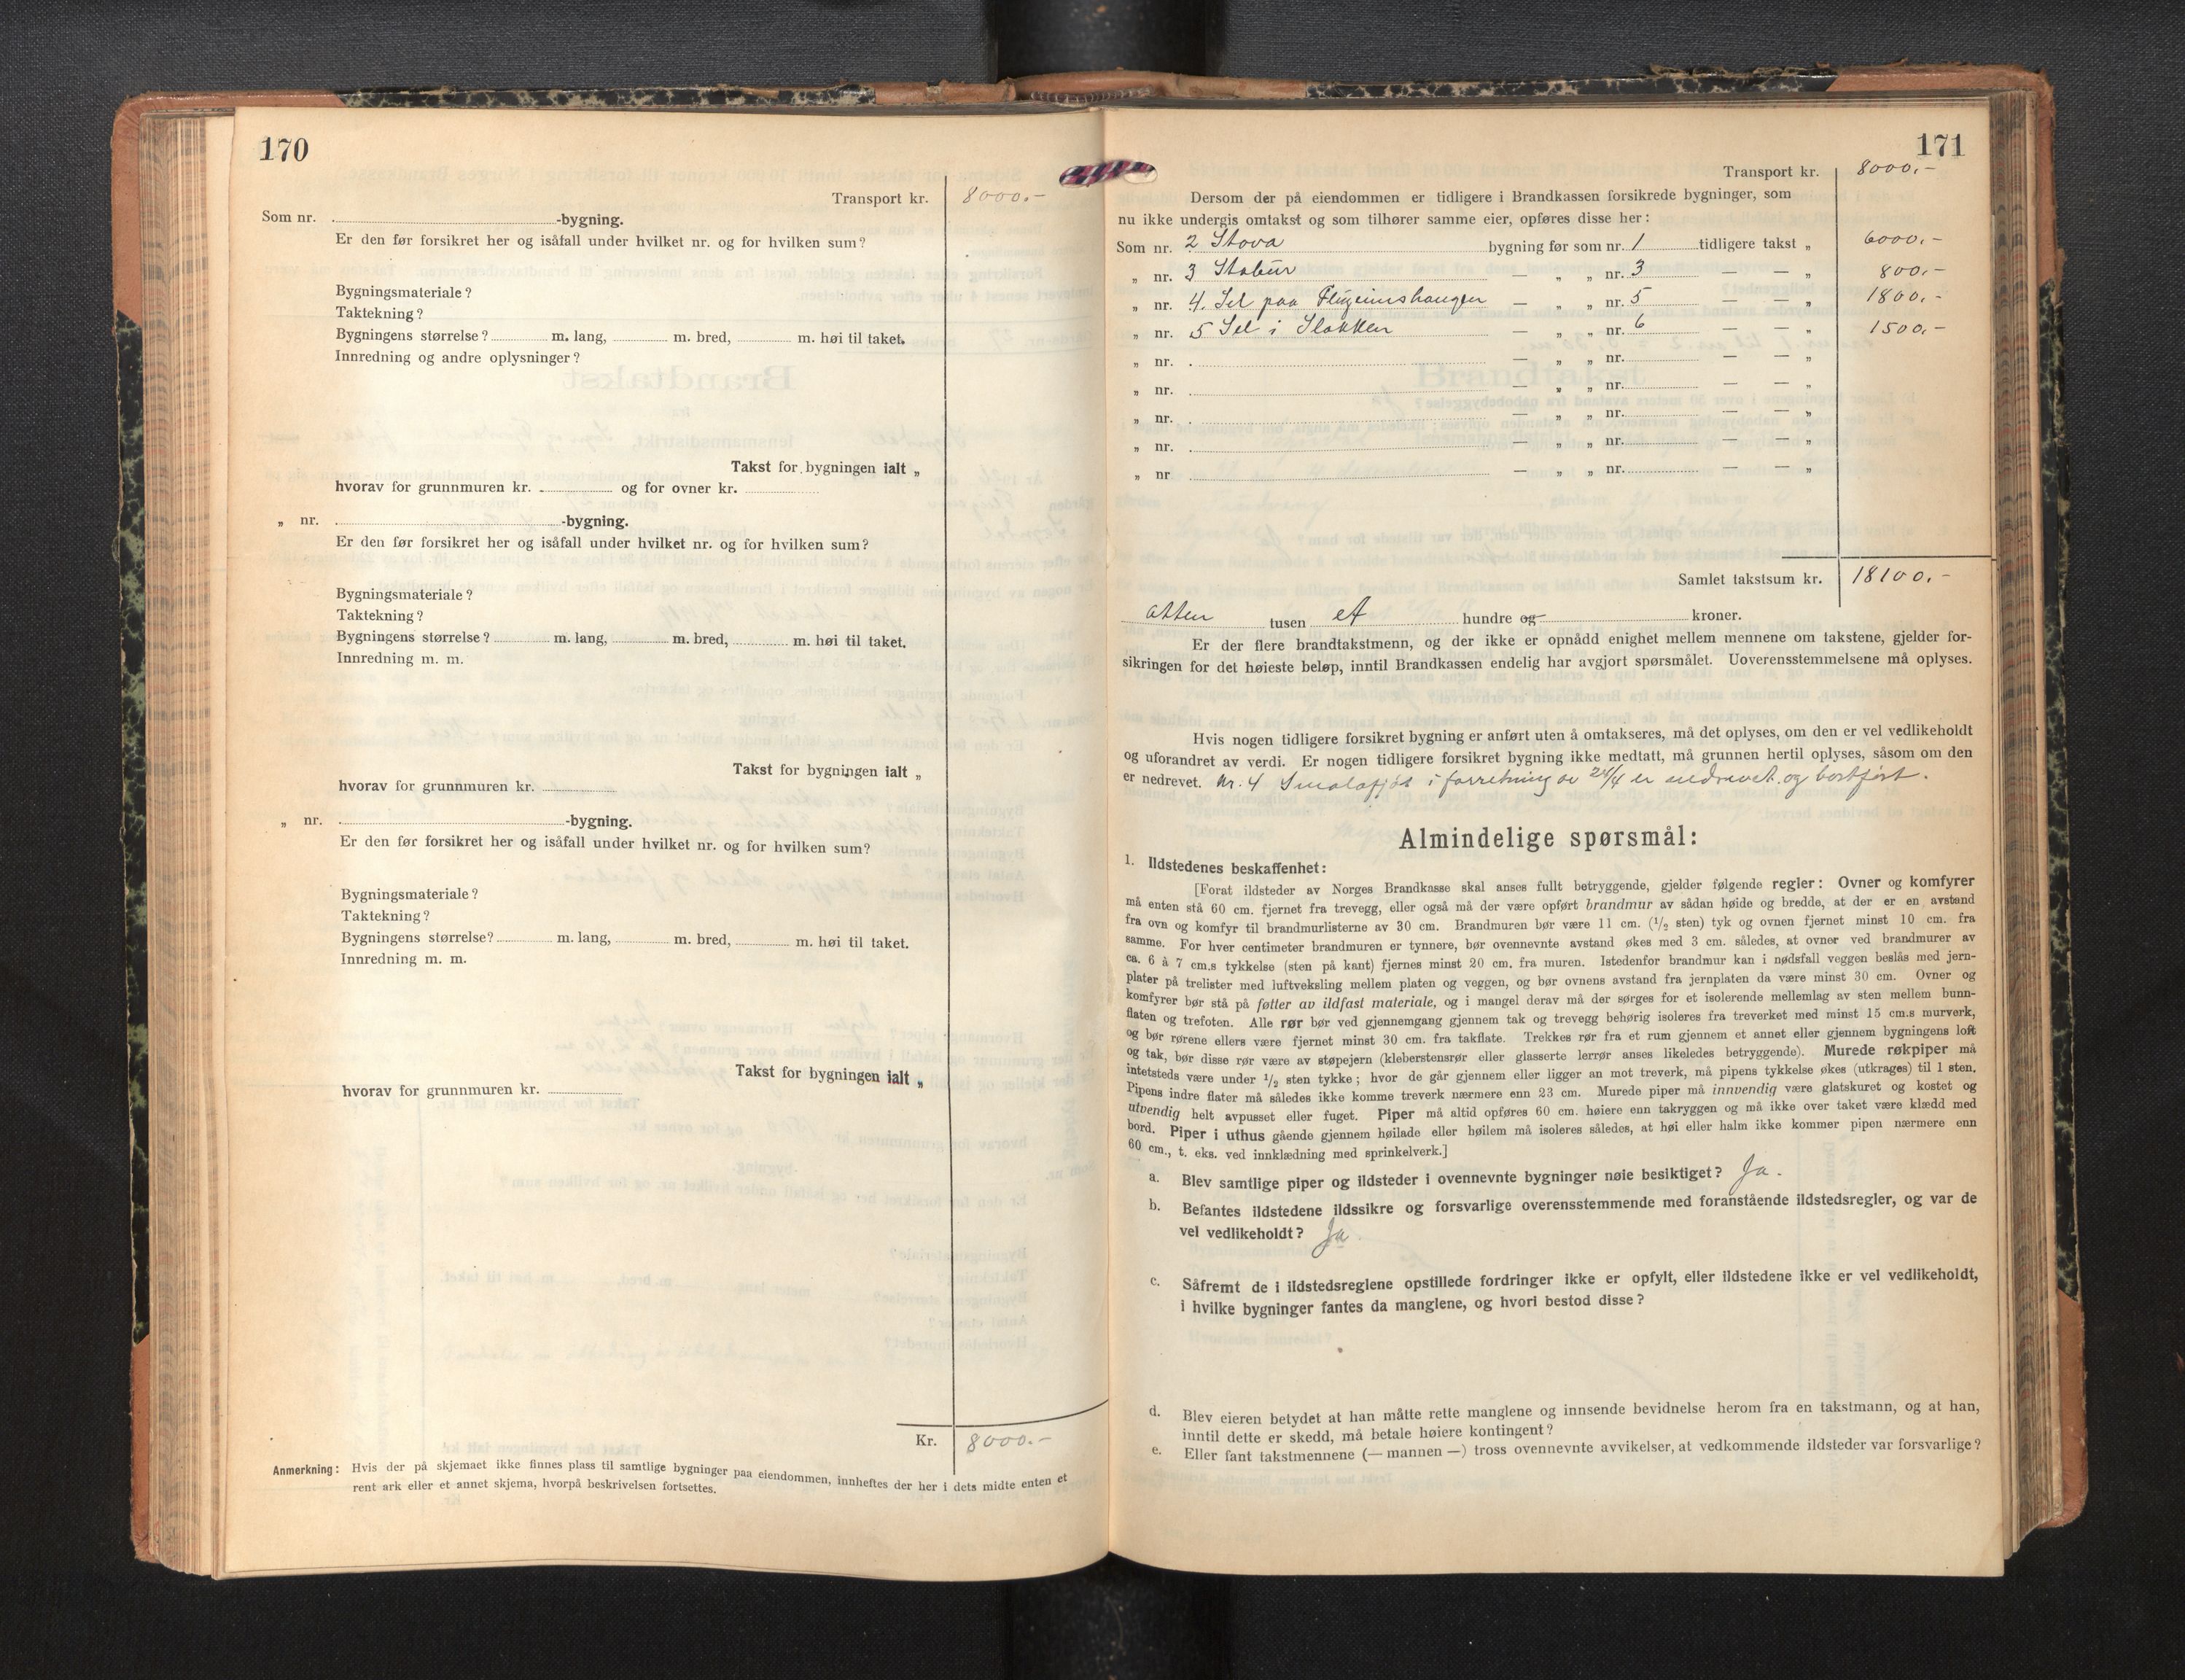 170
Transport kr. 8000.-
Som nr. -bygning.
Er den før forsikret her og isåfall under hvilket nr. og for hvilken sum?
Bygningsmateriale?
Taktekning?
Bygningens størrelse? m. lang, m. bred, m. høi til taket.
Innredning og andre oplysninger?
Takst for bygningen ialt „
hvorav for grunnmuren kr. og for ovner kr.
„ nr. -bygning.
Er den før forsikret her og isåfall under hvilket nr. og for hvilken sum?
Bygningsmateriale?
Taktekning?
Bygningens størrelse? m. lang, m. bred, m. høi til taket.
Innredning m. m.
Takst for bygningen ialt „
hvorav for grunnmuren kr.
„ nr. -bygning.
Er den før forsikret her og isåfall under hvilket nr. og for hvilken sum?
Bygningsmateriale?
Taktekning?
Bygningens størrelse? m. lang, m. bred, m. høi til taket.
Innredning m. m.
Takst for bygningen ialt „
hvorav for grunnmuren kr.
Kr. 8000.-
Anmerkning: Hvis der på skjemaet ikke finnes plass til samtlige bygninger paa eiendommen, innheftes der her i dets midte enten et
rent ark eller et annet skjema, hvorpå beskrivelsen fortsettes.
171
Transport kr. 8000.-
Dersom der på eiendommen er tidligere i Brandkassen forsikrede bygninger, som
nu ikke undergis omtakst og som tilhører samme eier, opføres disse her:
Som nr. 2 Stova bygning før som nr. 1 tidligere takst „ 6000.-
„ nr. 3 Stabur — „ „ nr. 3 — — „ 800.-
„ nr. 4. Sel paa Flugeimshaugen — „ „ nr. 5 — — „ 1800.-
„ nr. 5 Sel i Slakken — „ „ nr. 6 — — „ 1500.-
„ nr. — „ „ nr. — — „
„ nr. — „ „ nr. — — „
„ nr. — „ „ nr. — — „
„ nr. — „ „ nr. — — „
„ nr — „ „ nr. — — „
Samlet takstsum kr. 18100.-
atten tusen et hundre og kroner.
Er der flere brandtakstmenn, og der ikke er opnådd enighet mellem mennene om takstene, gjelder for-
sikringen for det høieste beløp, inntil Brandkassen endelig har avgjort spørsmålet. Uoverensstemmelsene må oplyses.
Hvis nogen tidligere forsikret bygning er anført uten å omtakseres, må det oplyses, om den er vel vedlikeholdt
og uforandret av verdi. Er nogen tidligere forsikret bygning ikke medtatt, må grunnen hertil oplyses, såsom om den
er nedrevet. Nr. 4 Smalafjøs i forretning av 24/4 er nedrevet og bortført.
Almindelige spørsmål:
1. Ildstedenes beskaffenhet:
[Forat ildsteder av Norges Brandkasse skal anses fullt betryggende, gjelder følgende regler: Ovner og komfyrer
må enten stå 60 cm. fjernet fra trevegg, eller også må der være opført brandmur av sådan høide og bredde, at der er en avstand
fra ovn og komfyr til brandmurlisterne av 30 cm. Brandmuren bør være 11 cm. (1/2 sten) tyk og ovnen fjernet minst 10 cm. fra
samme. For hver centimeter brandmuren er tynnere, bør ovennevnte avstand økes med 3 cm. således, at ovner ved brandmurer av
ca. 6 à 7 cm.s tykkelse (sten på kant) fjernes minst 20 cm. fra muren. Istedenfor brandmur kan i nødsfall veggen beslås med jern-
plater på trelister med luftveksling mellem platen og veggen, og bør ovnens avstand fra jernplaten da være minst 30 cm. Ovner og
komfyrer bør stå på føtter av ildfast materiale, og i mangel derav må der sørges for et isolerende mellemlag av sten mellem bunn-
flaten og trefoten. Alle rør bør ved gjennemgang gjennem tak og trevegg behørig isoleres fra treverket med minst 15 cm.s murverk,
og bør rørene ellers være fjernet minst 30 cm. fra takflate. Trekkes rør fra et rum gjennem et annet eller gjennem bygningens loft
og tak, bør disse rør være av støpejern (kleberstensrør eller glasserte lerrør anses likeledes betryggende). Murede røkpiper må
intetsteds være under 1/2 sten tykke; hvor de går gjennem eller ligger an mot treverk, må pipens tykkelse økes (utkrages) til 1 sten.
Pipens indre flater må således ikke komme treverk nærmere enn 23 cm. Murede piper må innvendig være glatskuret og kostet og
utvendig helt avpusset eller fuget. Piper må altid opføres 60 cm. høiere enn takryggen og må ikke over taket være klædd med
bord. Piper i uthus gående gjennem høilade eller høilem må isoleres således, at høi eller halm ikke kommer pipen nærmere enn
60 cm., t. eks. ved innklædning med sprinkelverk.]
a. Blev samtlige piper og ildsteder i ovennevnte bygninger nøie besiktiget? Ja.
b. Befantes ildstedene ildssikre og forsvarlige overensstemmende med foranstående ildstedsregler, og var de
vel vedlikeholdt? Ja.
c. Såfremt de i ildstedsreglene opstillede fordringer ikke er opfylt, eller ildstedene ikke er vel vedlikeholdt,
i hvilke bygninger fantes da manglene, og hvori bestod disse?
d. Blev eieren betydet at han måtte rette manglene og innsende bevidnelse herom fra en takstmann, og at han,
inntil dette er skedd, må betale høiere kontingent?
e. Eller fant takstmennene (— mannen —) tross ovennevnte avvikelser, at vedkommende ildsteder var forsvarlige?